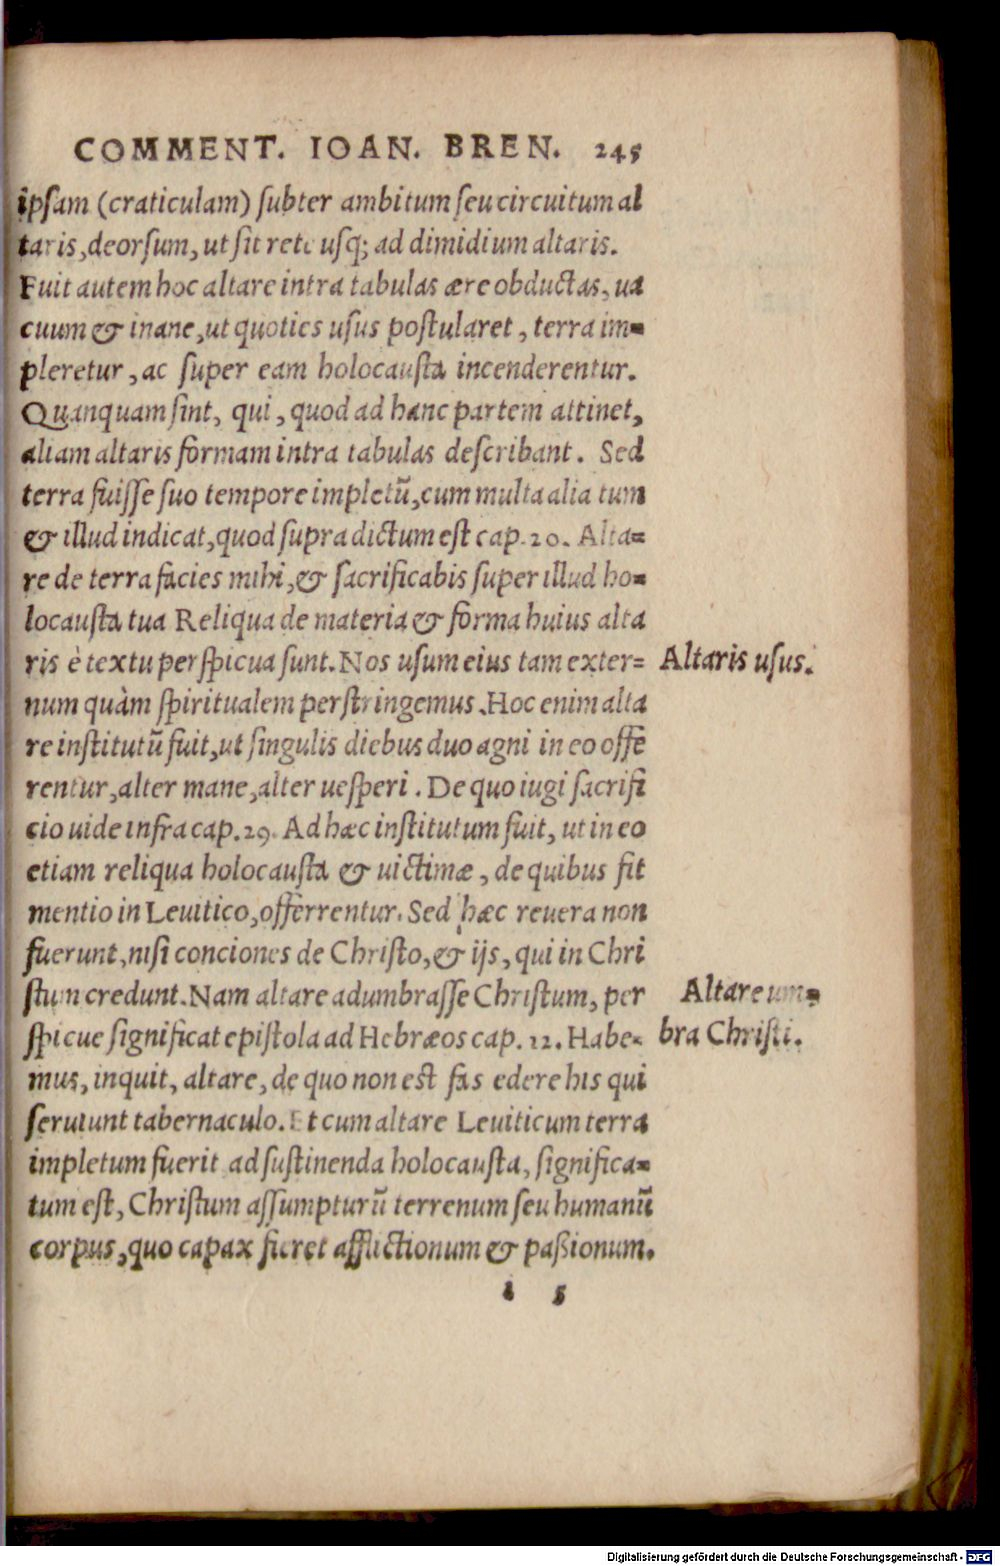 COMMENT. IOAN. BREN. 245
ipsam (craticulam) subter ambitum seu circuitum al
taris, deorsum, ut sit rete usq; ad dimidium altaris.
Fuit autem hoc altare intra tabulas ære obductas, ua
cuum & inane, ut quoties usus postularet, terra im=
pleretur, ac super eam holocausta incenderentur.
Quanquam sint, qui, quod ad hanc partem attinet,
aliam altaris formam intra tabulas describant. Sed
terra fuisse suo tempore impletũ, cum multa alia tum
& illud indicat, quod supra dictum est cap. 20. Alta=
re de terra facies mihi, & sacrificabis super illud ho=
locausta tua Reliqua de materia & forma huius alta
ris è textu perspicua sunt. Nos usum eius tam exter=
num quàm spiritualem perstringemus. Hoc enim alta
re institutũ fuit, ut singulis diebus duo agni in eo offe
rentur, alter mane, alter uesperi. De quo iugi sacrifi
cio uide infra cap. 29. Ad hæc institutum fuit, ut in eo
etiam reliqua holocausta & uictimæ, de quibus fit
mentio in Leuitico, offerrentur. Sed hæc reuera non
fuerunt, nisi conciones de Christo, & ijs, qui in Chri
stum credunt. Nam altare adumbrasse Christum, per
spicue significat epistola ad Hebræos cap. 12. Habe=
mus, inquit, altare, de quo non est fas edere his qui
seruiunt tabernaculo. Et cum altare Leuiticum terra
impletum fuerit ad sustinenda holocausta, significa=
tum est, Christum assumpturũ terrenum seu humanũ
corpus, quo capax fieret afflictionum & paßionum.
i 5
Altaris usus.
Altare um=
bra Christi.
Digitalisierung gefördert durch die Deutsche Forschungsgemeinschaft - DFG